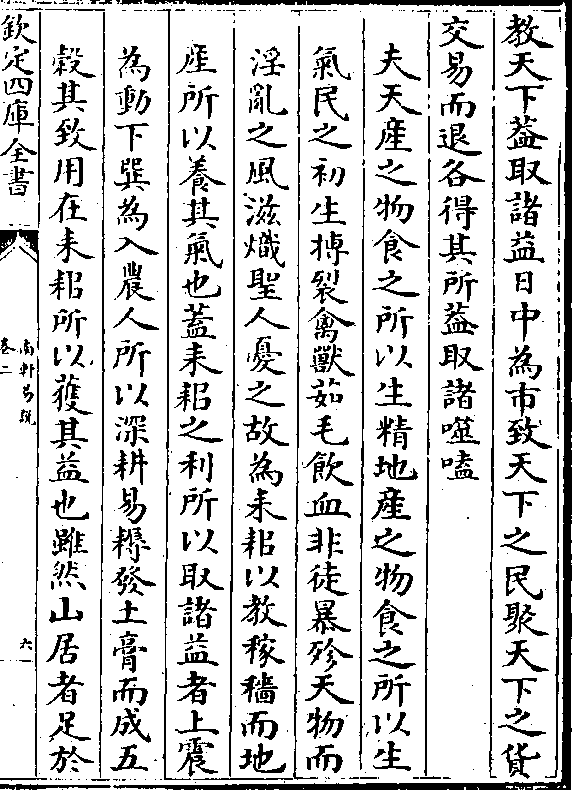 教天下蓋取諸益日中為市致天下之民聚天下之貨
交易而退各得其所蓋取諸噬嗑
夫天產之物食之所以生精地產之物食之所以生
氣民之初生搏裂禽獸茹毛飲血非徒暴殄天物而
淫亂之風滋熾聖人憂之故為耒耜以教稼穡而地
產所以養其氣也蓋耒耜之利所以取諸益者上震
為動下巽為入農人所以深耕易耨發土膏而成五
穀其致用在耒耜所以獲其益也雖然山居者足於
欽定四庫全書
南軒易說
卷二
六